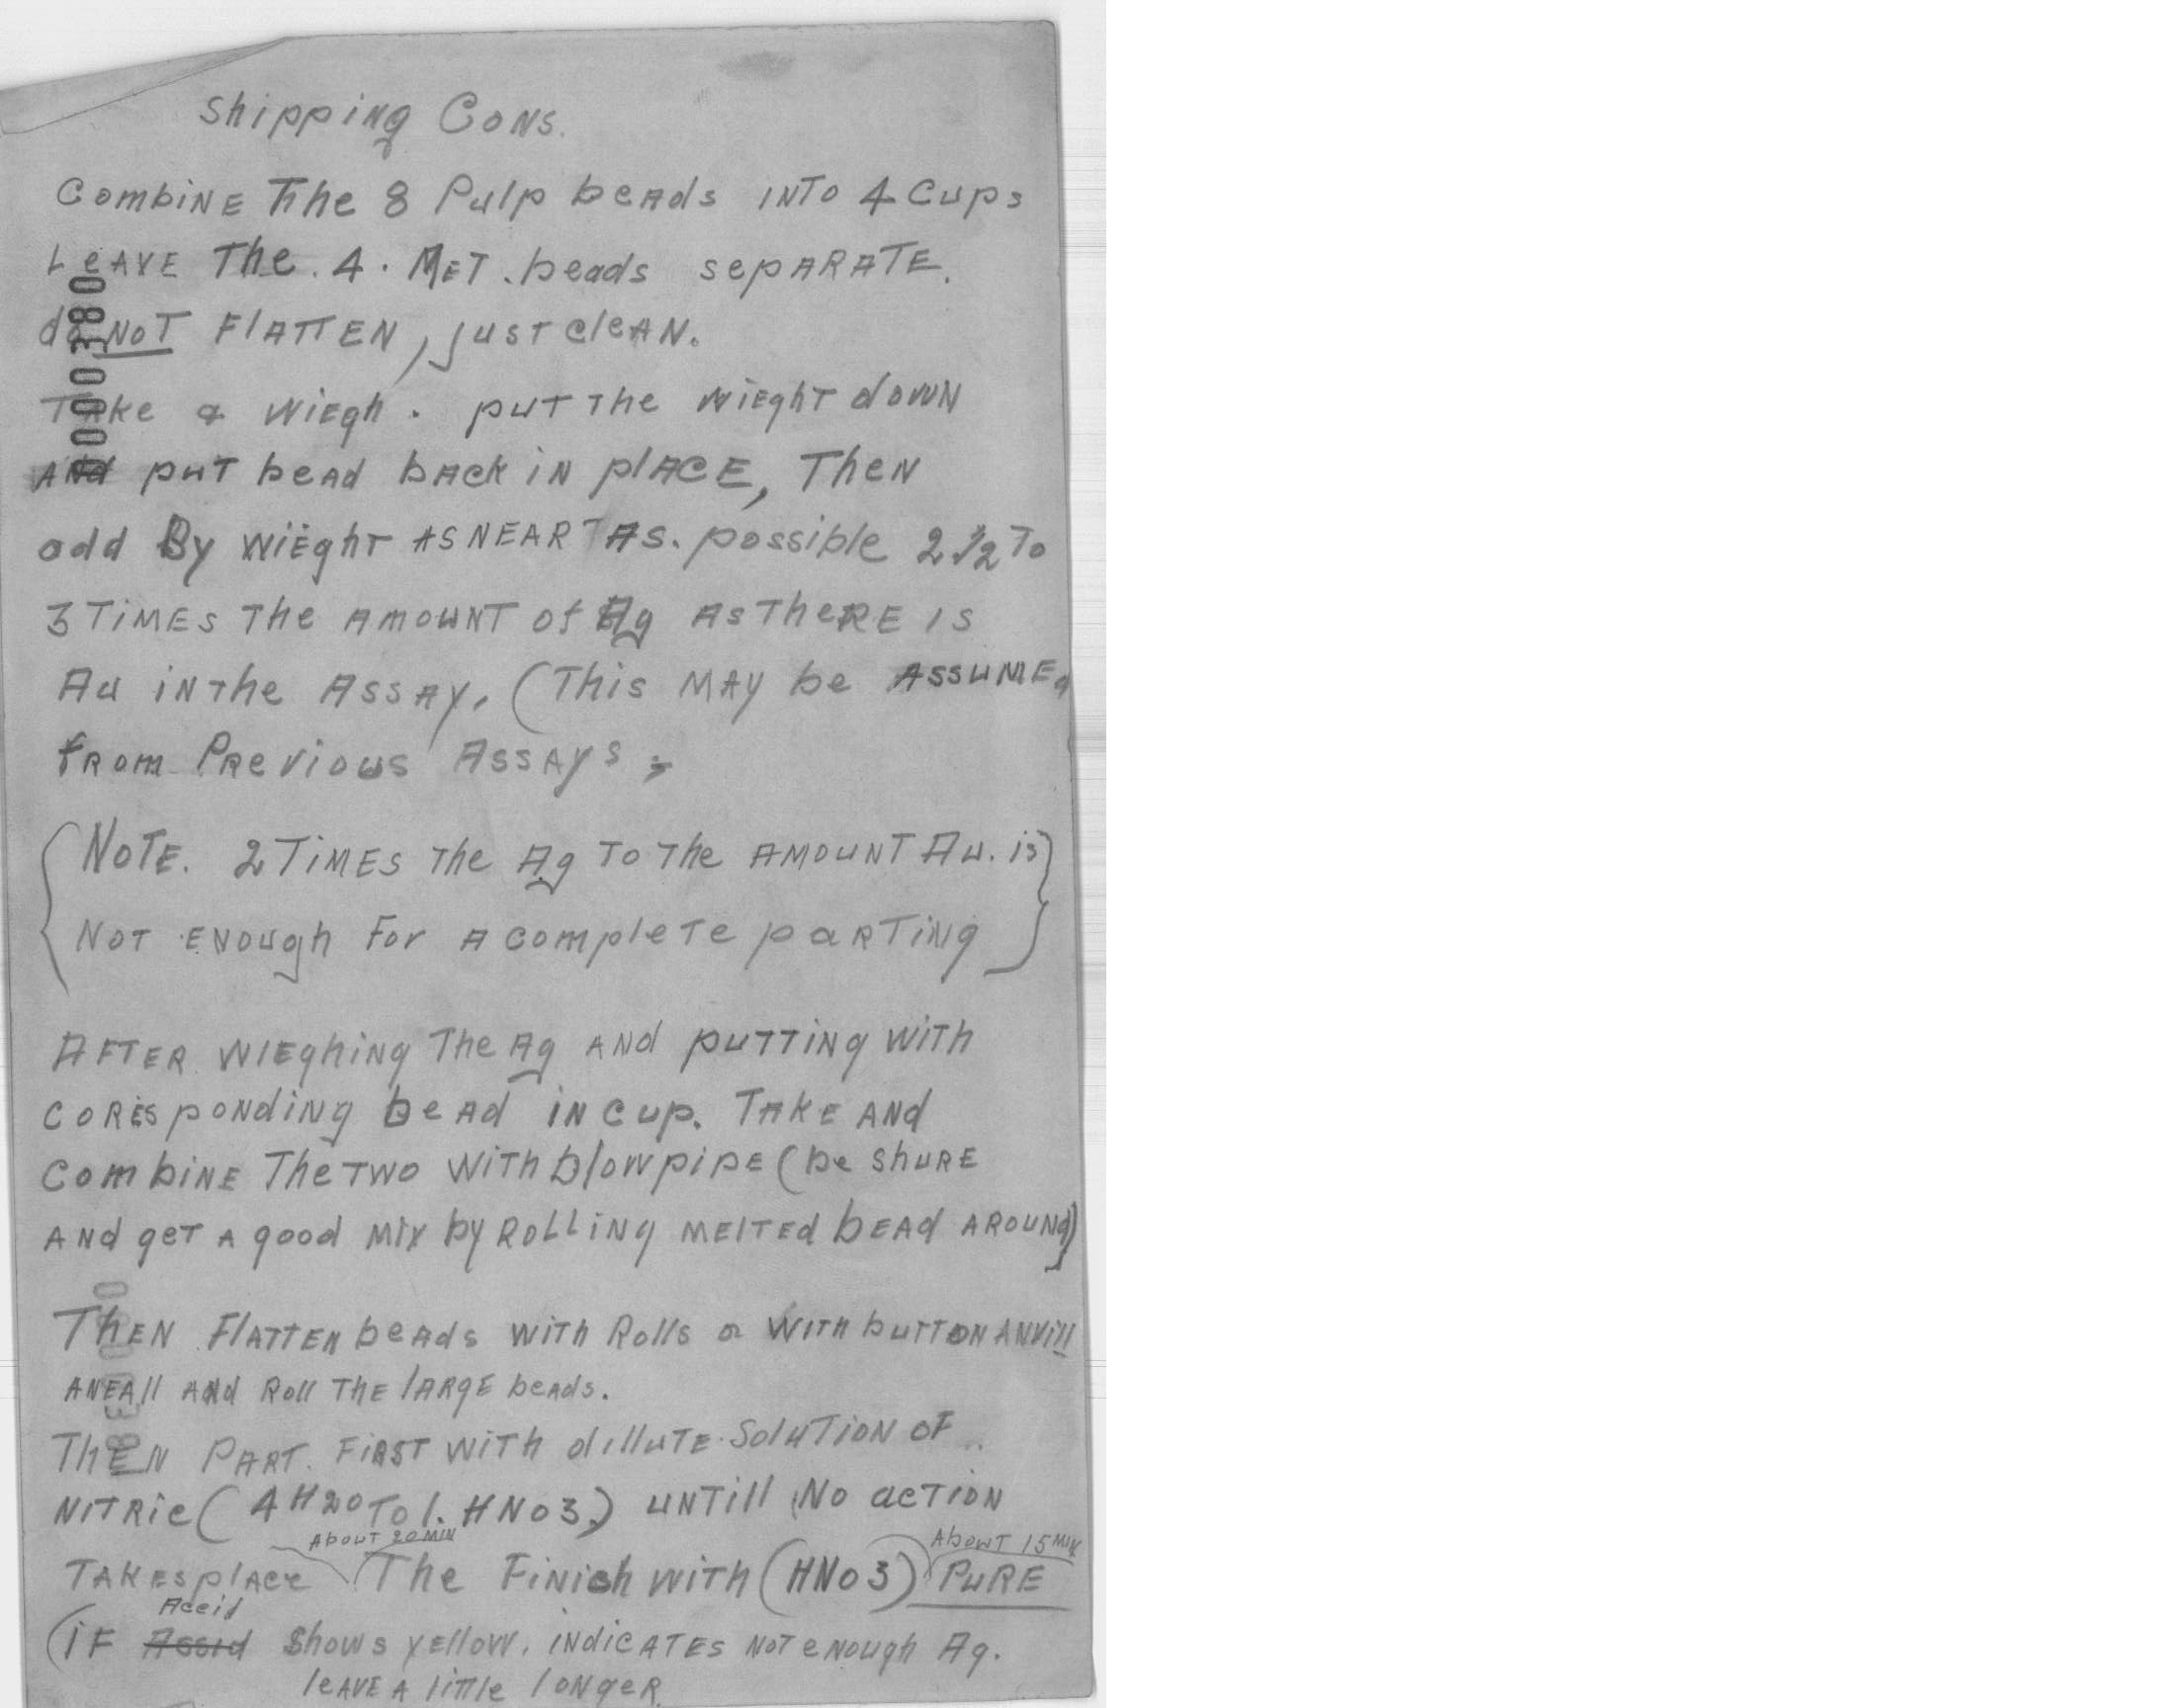 Shipping Cons.
Combine The 8 Pulp beads into 4 Cups
Leave The . 4 . Met . beads separate.
do NOT Flatten, just clean.
Take a wiegh . put the wieght down
And put bead back in place, Then
add By wieght as near as. possible 2 1/2 To
3 Times The amount of Ag as there is
Au in the Assay. (This may be assumed
from Previous Assays.
{Note. 2 Times the Ag to the amount Au. is}
Not enough for a complete parting
After wieghing The Ag and putting with
coresponding bead in cup. Take and
Combine The two with blowpipe (be shure
and get a good mix by Rolling melted bead around)
Then Flatten beads with Rolls or with button Anvill
aneall and Roll the large beads.
Then Part. First with dillute Solution of
Nitric (4 H2O To 1. HNO3.) untill No action
About 20 min
About 15 min
Takesplace The Finish with (HNO3) Pure
Aceid
(if Assid shows yellow, indicates not enough Ag.
leave a little longer
0000380